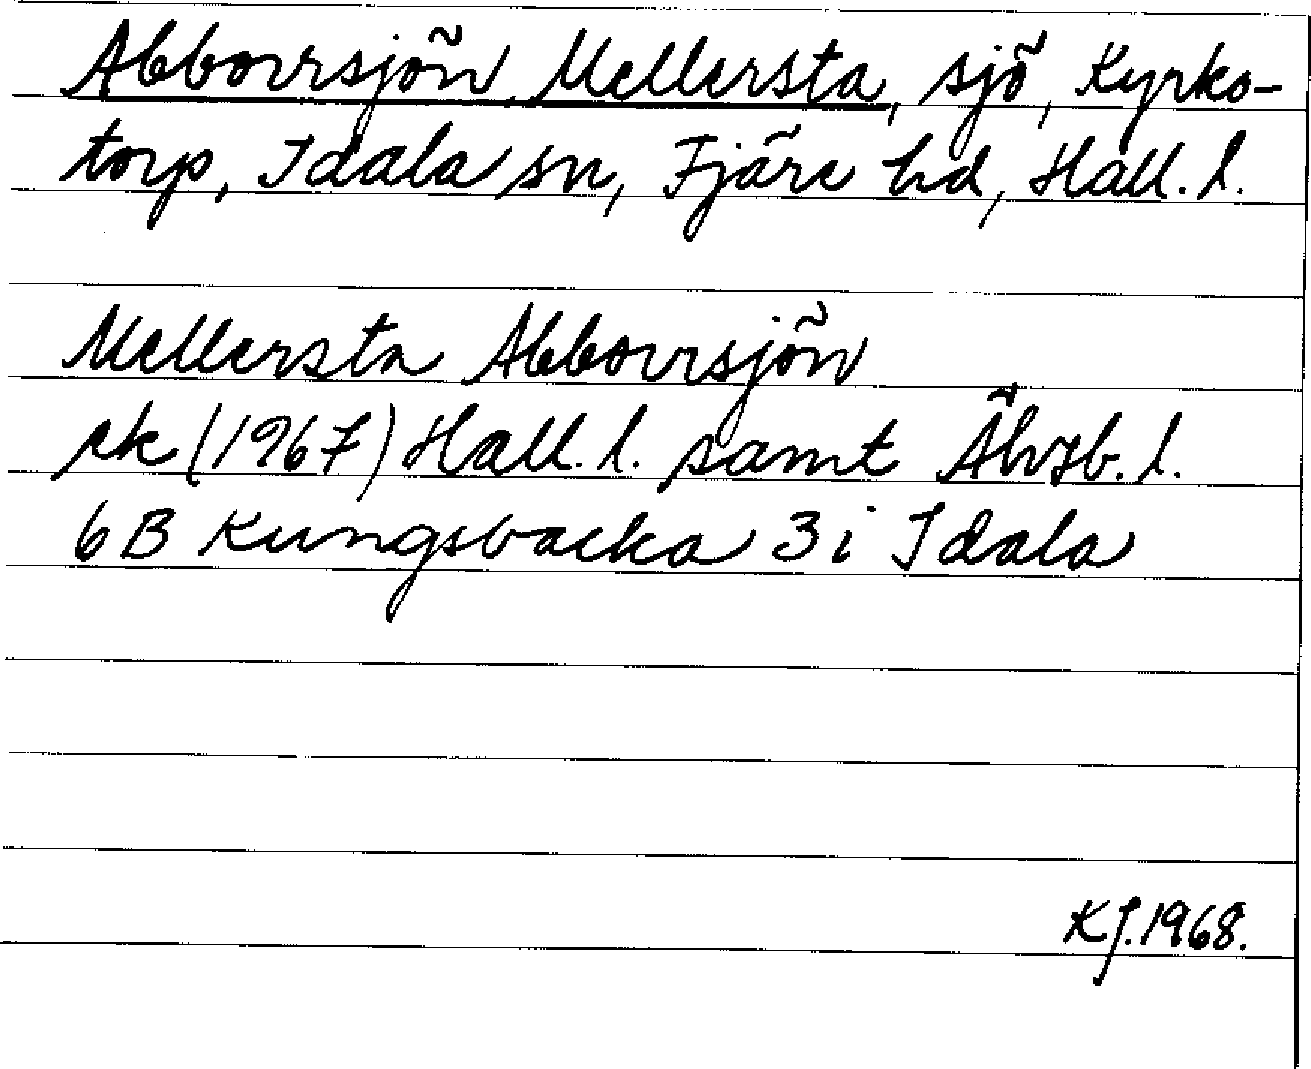 Abborrsjön, Mellersta, sjö, Kyrko-
torp, Idala sn, Fjäre hd, Hall. l.
Mellersta Abborrsjön
ek (1967) Hall. l. samt Älvsb. l.
6B Kungsbacka 3i Idala
KJ. 1968.